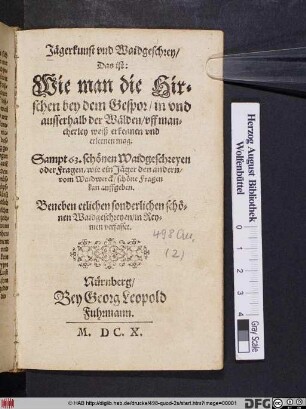 Jägerkunst vnd Waidgeschrey/
Das ist:
Wie man die Hir-
schen bey dem Gespor/ in vnd
ausserhalb der Wälden/ vff man-
cherley weiß erkennen vnd
erlernen mag.
Sampt 63. schönen Waidgeschreyen
oder Fragen/ wie ein Jäger den andern/
vom Waidwerck/ schöne Fragen
kan auffgeben.
Beneben etlichen sonderlichen schö-
nen Waidgeschreyen/ in Rey-
men verfasset.
498 Qu.
(2)
Nürnberg/
Bey Georg Leopold
Fuhrmann.
M. DC. X.
Herzog August Bibliothek
Wolfenbüttel
Gray Scale
© HAB http://diglib.hab.de/drucke/498-quod-2s/start.htm?image=00001
DFG